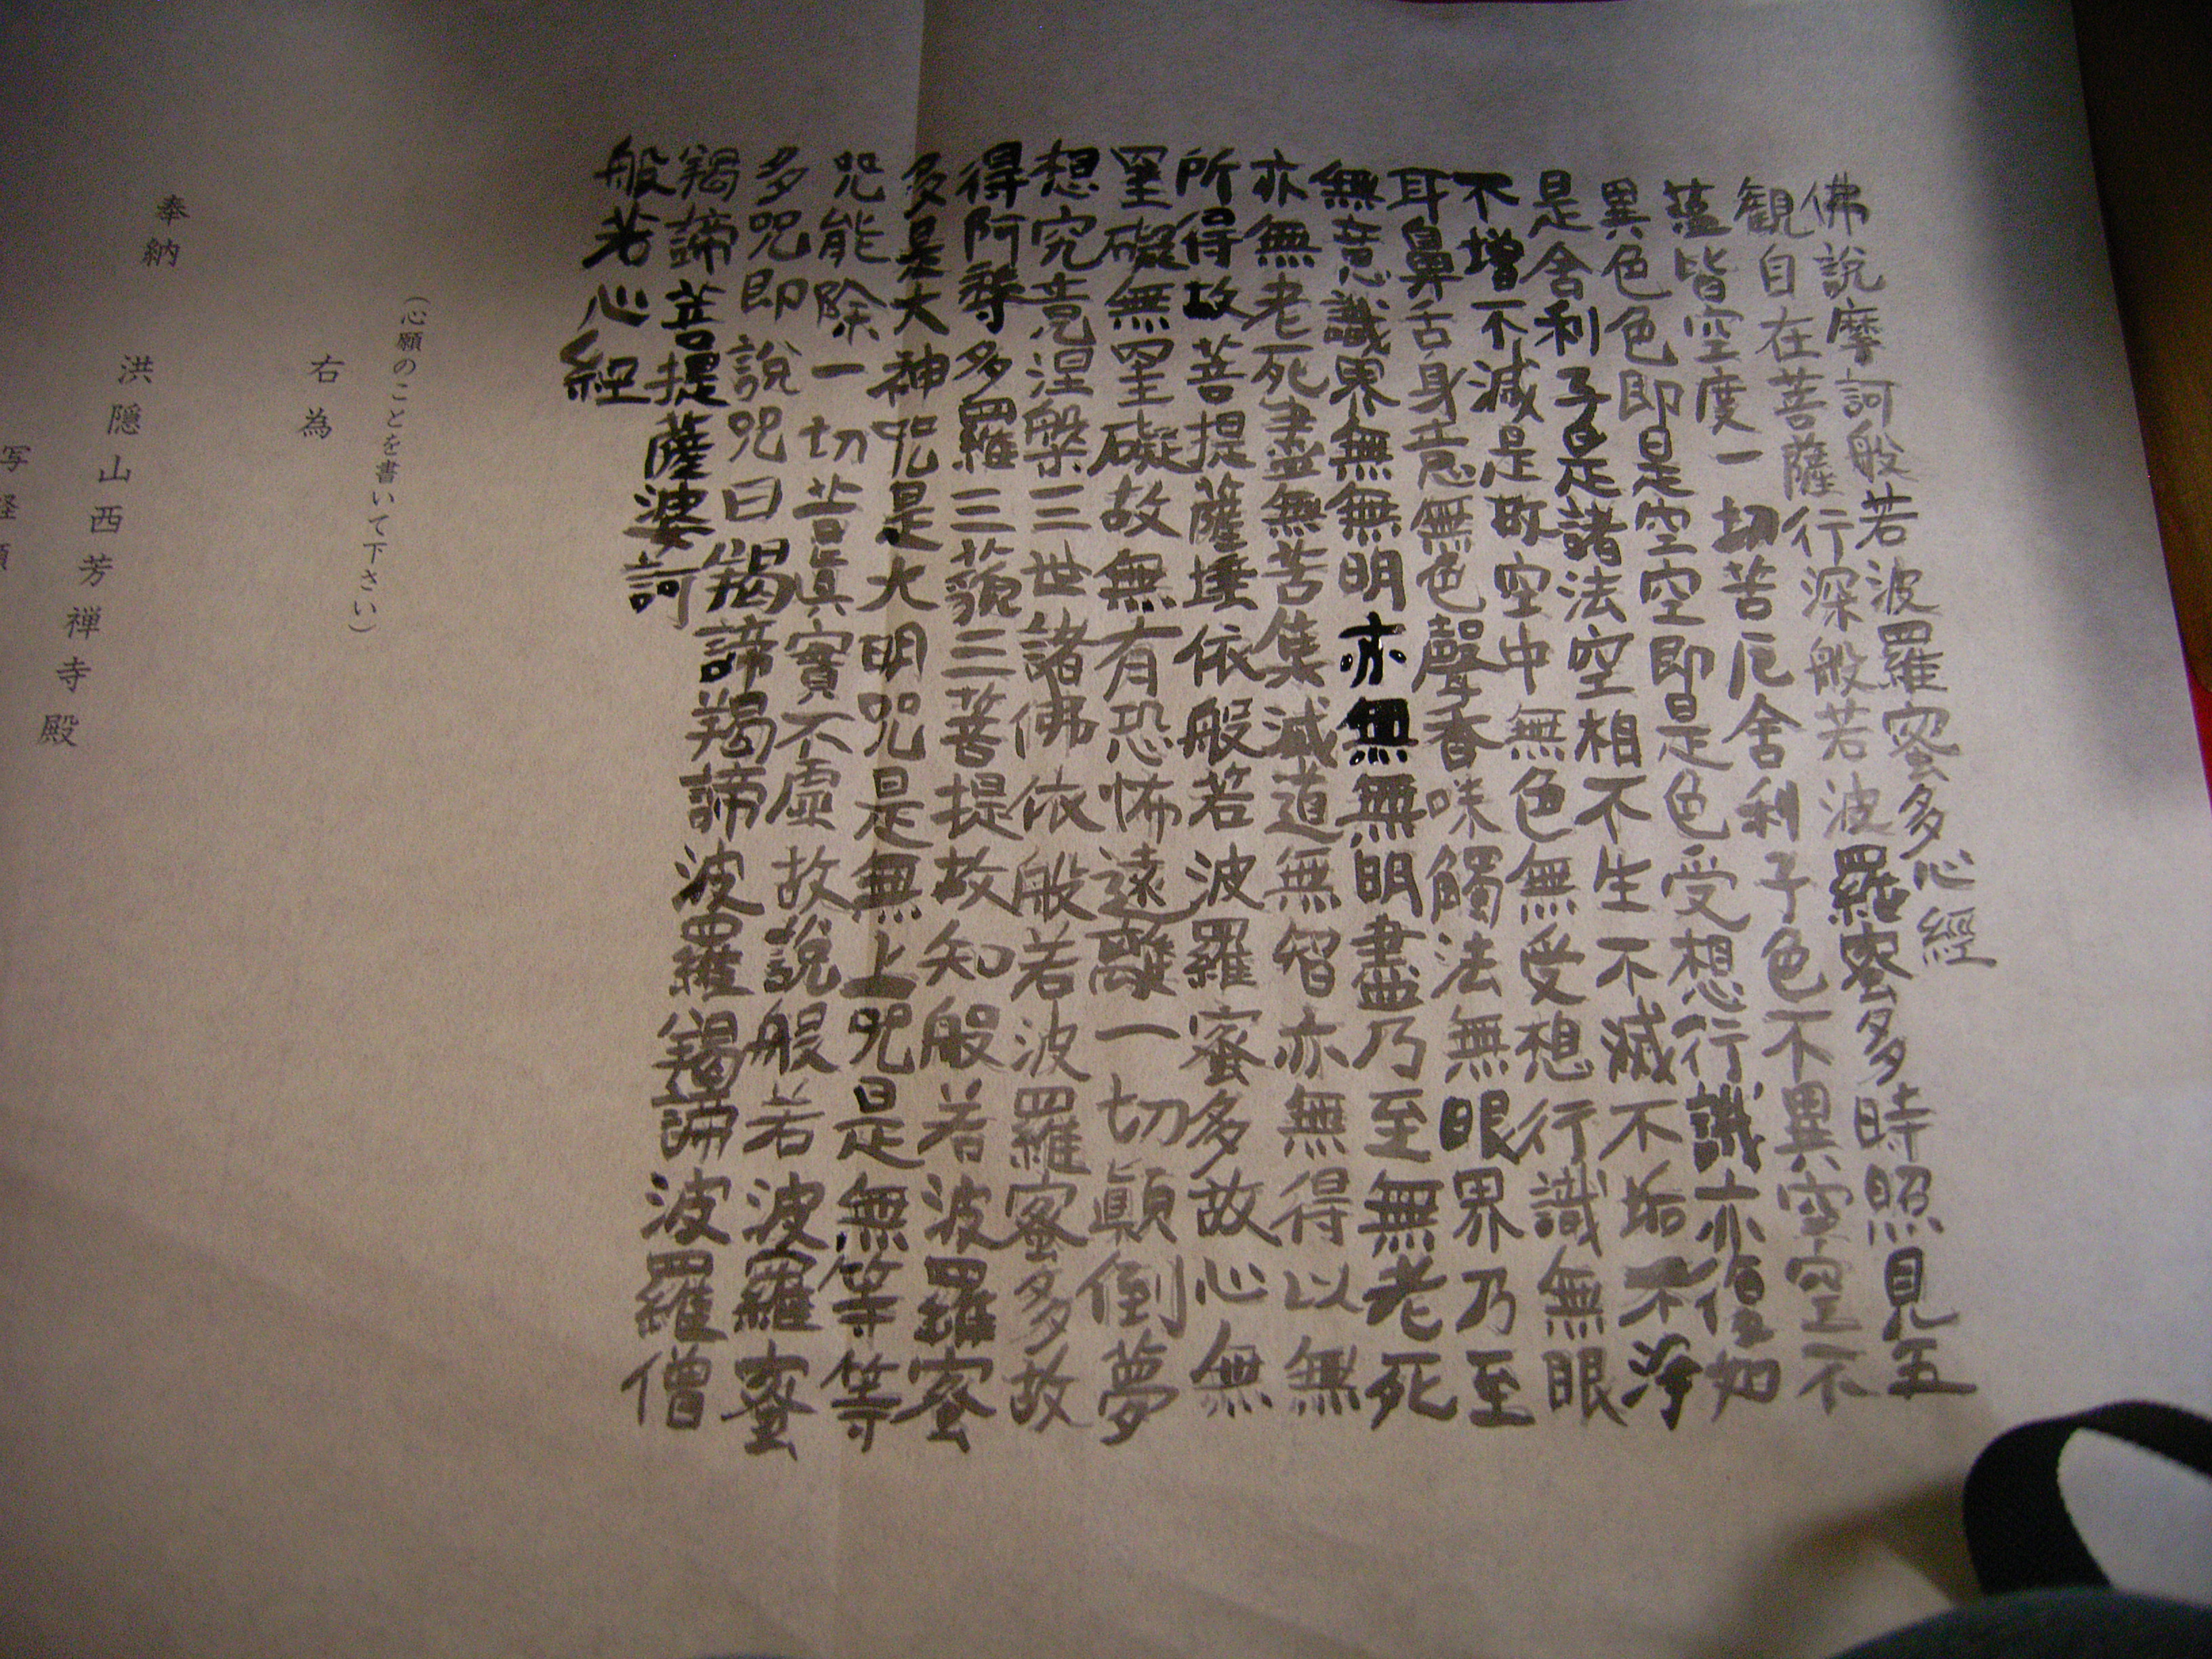 佛說摩訶般若波羅蜜多心經
観自在菩薩行深般若波羅蜜多時照見五
蘊皆空度一切苦厄舍利子色不異空空不
異色色即是空空即是色受想行識亦復如
是舍利子是諸法空相不生不滅不垢不淨
不增不減是故空中無色無受想行識無眼
耳鼻舌身意無色聲香味觸法無眼界乃至
無意識界無無明亦無無明盡乃至無老死
亦無老死盡無苦集滅道無智亦無得以無
所得故菩提薩埵依般若波羅蜜多故心無
罣礙無罣礙故無有恐怖遠離一切顛倒夢
想究竟涅槃三世諸佛依般若波羅蜜多故
得阿耨多羅三藐三菩提故知般若波羅蜜
多是大神咒是大明咒是無上咒是無等等
咒能除一切苦眞實不虛故說般若波羅蜜
多咒即說咒曰羯諦羯諦波羅羯諦波羅僧
羯諦菩提薩婆訶
般若心経
(心願のことを書いて下さい)
右為
奉納
洪隠山西芳禅寺殿
写経